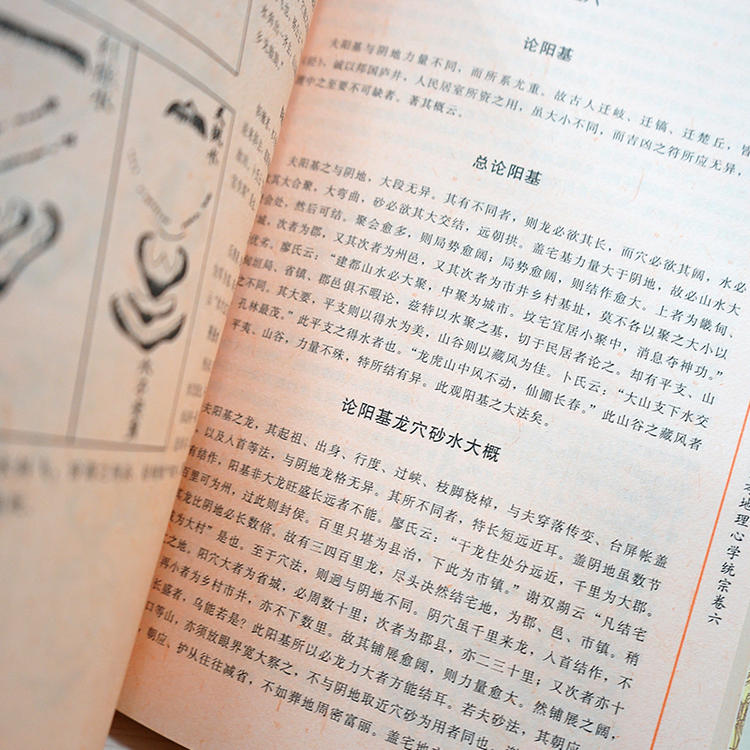 论阳基
夫阳基与阴地力量不同，而所系尤重。故古人迁岐、迁镐、迁楚丘，皆
诚以邦国庐井，人民居室所资之用，虽大小不同，而吉凶之符所应无异，
中之至要不可缺者。著其概云。
总论阳基
夫阳基之与阴地，大段无异。其有不同者，则龙必欲其长，而穴必欲其阔，水必
其大合聚，大弯曲，砂必欲其大交结，远朝拱。盖宅基力量大于阴地，故必山水大
会处，然后可结。聚会愈多，则局势愈阔；局势愈阔，则结作愈大。上者为畿甸、
城，次者为郡，又其次者为州邑，又其次者为市井乡村基址，莫不各以聚之大小以
优劣。廖氏云：“建都山水必大聚，中聚为城市。坟宅宜居小聚中，消息夺神功。”
垣局、省镇、郡邑俱不暇论，兹特以水聚之基，切于民居者论之。却有平支、山
之不同。其大要，平支则以得水为美，山谷则以藏风为佳。卜氏云：“大山支下水交
孔林最茂。”此平支之得水者也。“龙虎山中风不动，仙圃长春。”此山谷之藏风者
平夷、山谷，力量不殊，特所结有异。此观阳基之大法矣。
论阳基龙穴砂水大概
夫阳基之龙，其起祖、出身、行度、过峡、枝脚桡棹，与夫穿落传变、台屏帐盖
以及人首等法，与阴地龙格无异。其所不同者，特长短远近耳。盖阴地虽数节
有结作，阳基非大龙旺盛长远者不能。廖氏云：“干龙住处分远近，千里为大郡。
百里可为州，过此则封侯。百里只堪为县治，下此为市镇。”谢双湖云“凡结宅
龙比阴地必长数倍。故有三四百里龙，尽头决然结宅地，为郡、邑、市镇。稍
为大村”是也。至于穴法，则迥与阴地不同。阴穴虽千里来龙，人首结作，不
之地。阳穴大者为省城，必周数十里；次者为郡县，亦二三十里；又次者亦十
再小者为乡村市井，亦不下数里。故其铺展愈阔，则力量愈大。然铺展之阔，
长盛者，乌能若是？此阳基所以必龙力大者方能结耳。若夫砂法，其朝应
口等山，亦须放眼界宽大察之，不与阴地取近穴砂为用者同也。
朝应、护从往往减省，不如葬地周密富丽。盖宅地
地理心学统宗卷六